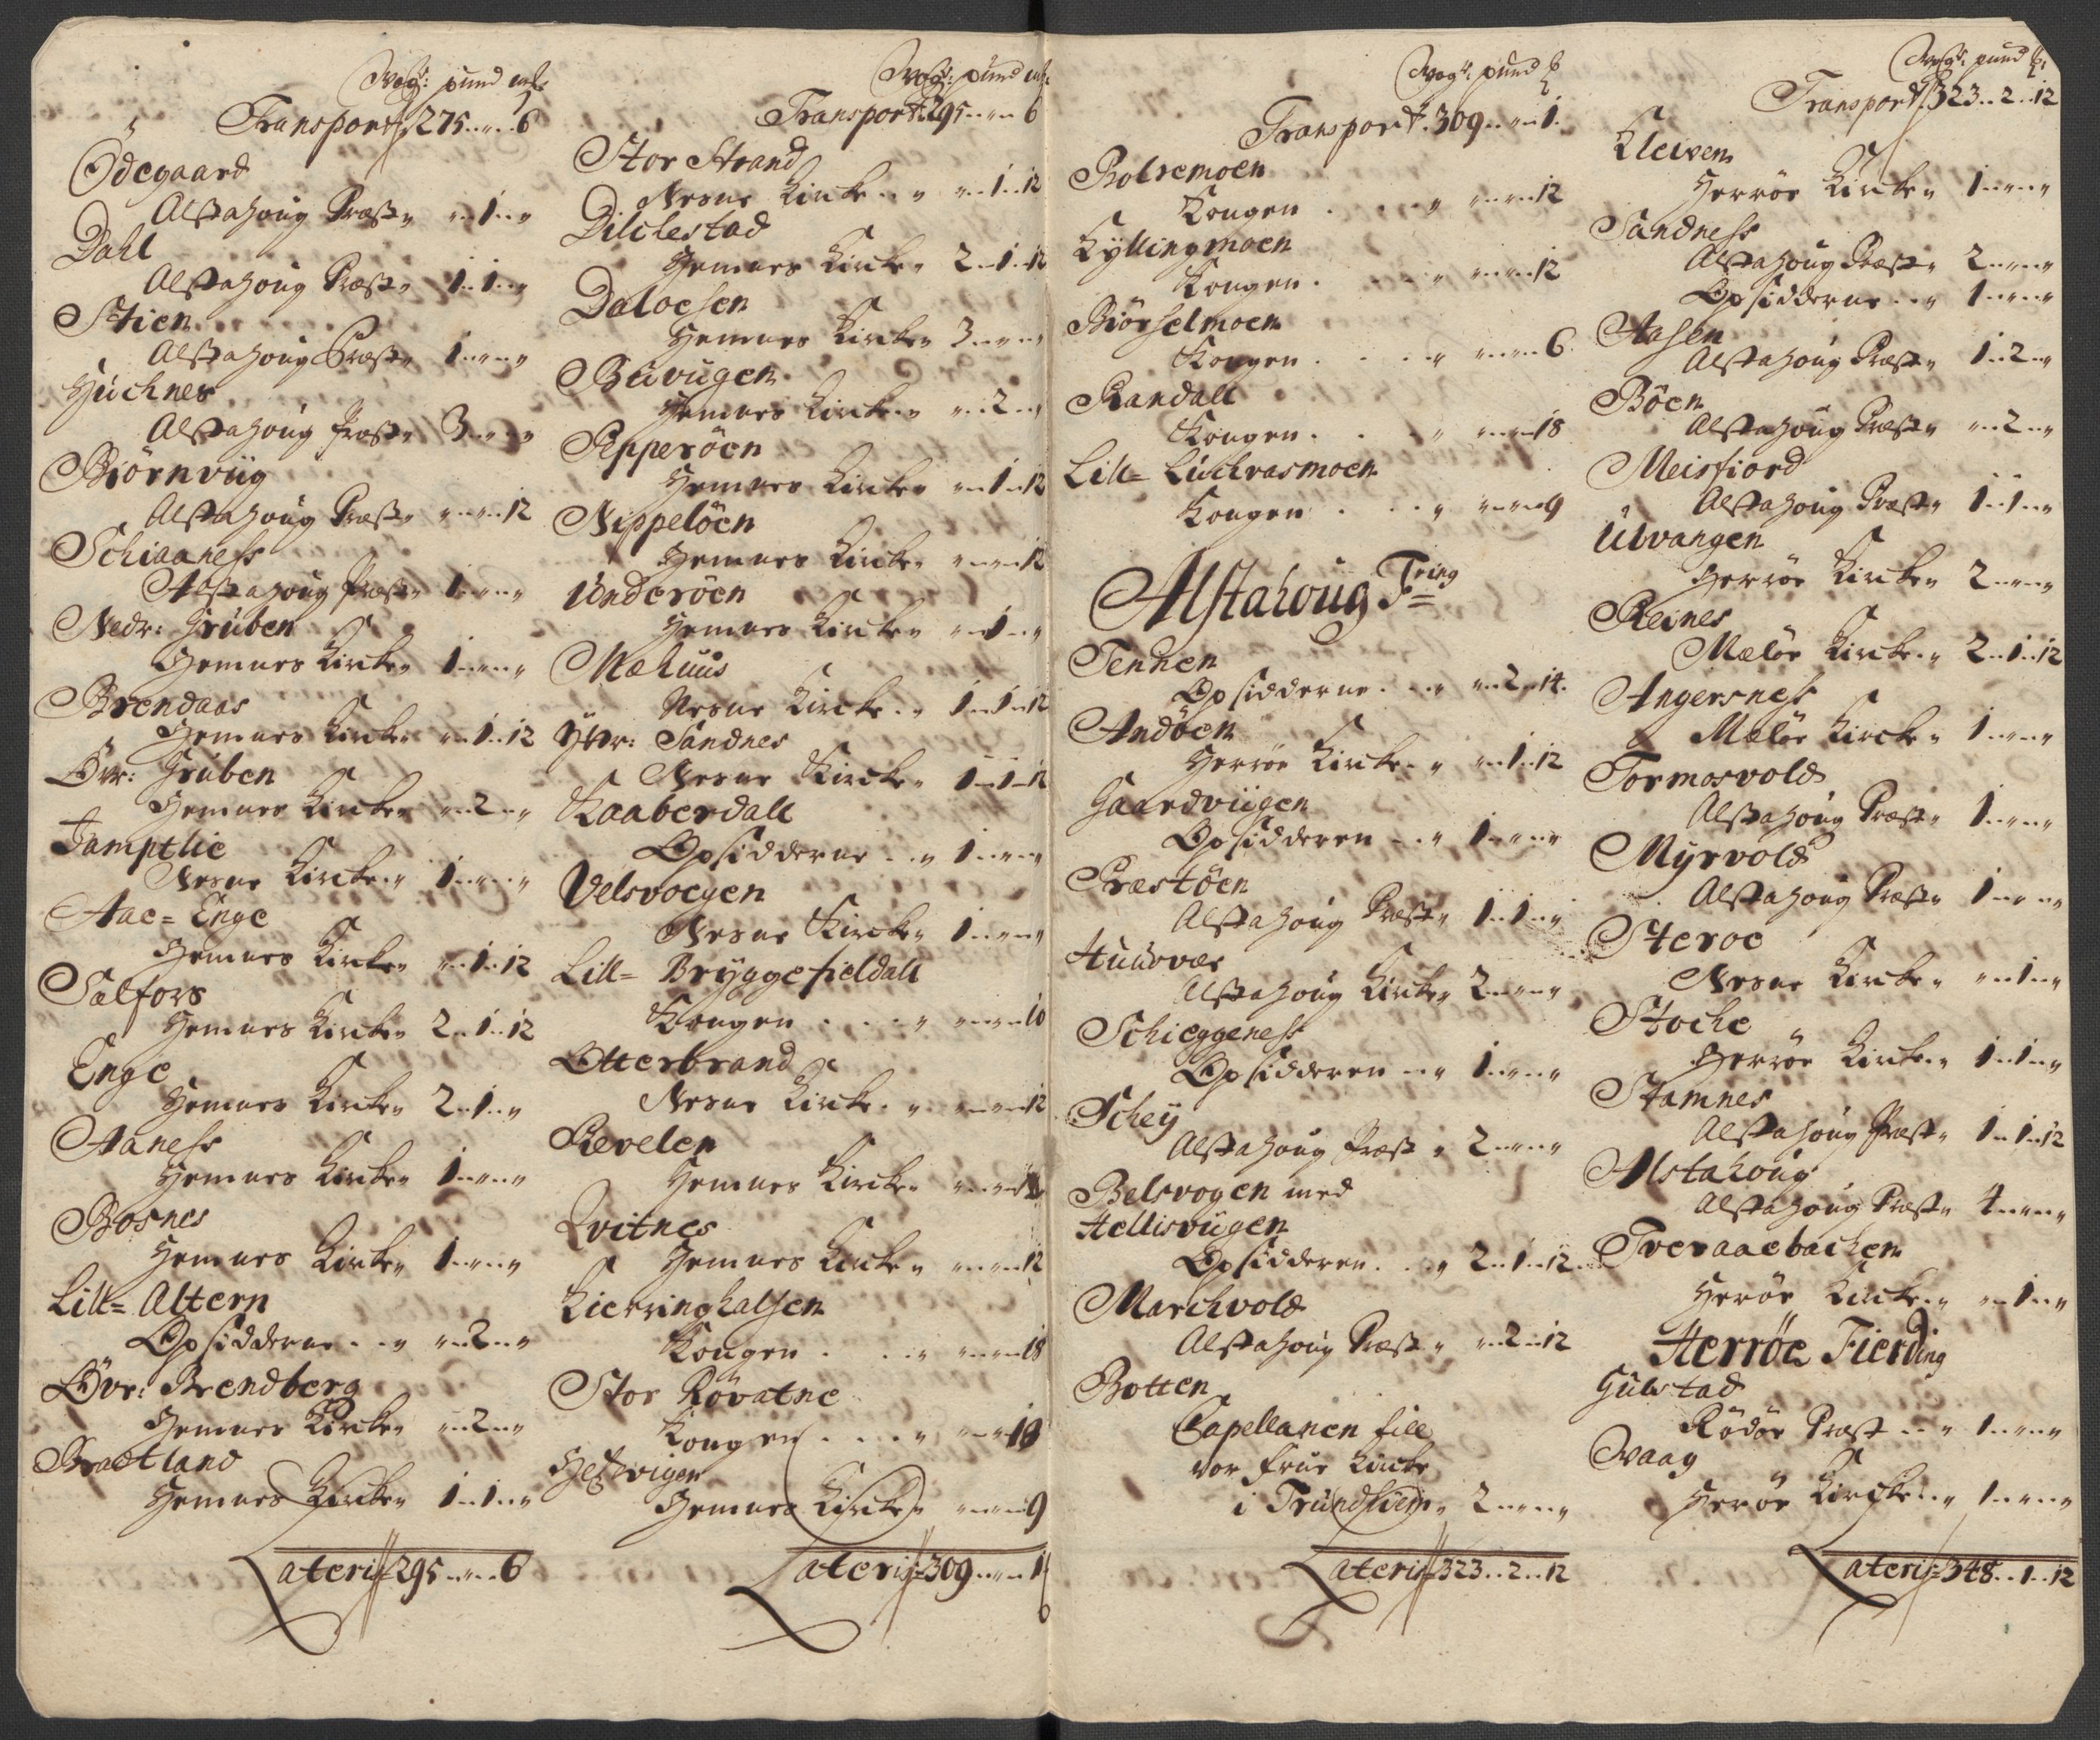 Wog: pund mk
Transport 275 .. „ .. 6
Ödegaard
Alstahoug Præst „ „ .. 1 .. „
Dahl
Alstahoug Præst „ 1 .. 1 .. „
Stien
Alstahoug Præst „ 1 .. „ .. „
Huchnes
Alstahoug Præst „ 3 .. „ .. „
Biörnviig
Alstahoug Præst „ „ .. „ .. 12
Schiaaness
Alstahoug Præst „ 1 .. „ .. „
Nedr: Gruben
Hemnes Kircke „ 1 .. „ .. „
Brendaas
Hemnes Kircke „ „ .. 1 .. 12
Övr: Gruben
Hemnes Kircke „ „ .. 2 .. „
Jamptlie
Nesne Kircke „ 1 .. „ .. „
Aae = Enge
Hemnes Kircke „ „ .. 1 .. 12
Salfors
Hemnes Kircke „ 2 .. 1 .. 12
Enge
Hemnes Kircke „ 2 .. 1 .. „
Aaness
Hemnes Kircke „ 1 .. „ .. „
Bosnes
Hemnes Kircke „ 1 .. „ .. „
Lill = Altern
Opsidderne .. „ „ .. 2 .. „
Övr: Brendberg
Hemnes Kircke „ „ .. 2 .. „
Bradtland
Hemnes Kircke „ 1 .. 1 .. „
Lateris 295 .. „ .. 6
Wog: pund mk
Transport 295 .. „ .. 6
Stor Strand
Nesne Kircke .. „ „ .. 1 .. 12
Dilckestad
Hemnes Kircke „ 2 .. 1 .. 12
Daloesen
Hemnes Kircke „ 3 .. „ .. „
Buvugen
Hemnes Kircke „ „ .. 2 .. „
Pepperöen
Hemnes Kircke „ „ .. 1 .. 12
Nippelöen
Hemnes Kircke „ „ .. „ .. 12
Underöen
Hemnes Kircke „ „ .. 1 .. „
Mæhuus
Nesne Kircke .. „ 1 .. 1 .. 12
Yttr: Sandnes
Nesne Kircke „ 1 .. 1 .. 12
Kaaberdall
Opsidderne .. „ 1 .. „ .. „
Velsvoegen
Nesne Kircke „ 1 .. „ .. „
Lill = Bryggefieldall
Kongen .. .. „ „ .. „ .. 10
Otterbrand
Nesne Kircke .. „ „ .. „ .. 12
Revelen
Hemnes Kircke „
Qvitnes
Hemnes Kircke „ „ .. „ .. 12
Kierringhalsen
Kongen .. .. „ „ .. „ .. 18
Stor Rövatne
Kongen .. .. „ „ .. „ .. 18
Hestvigen
Hemnes Kircke „ „ .. „ .. 9
Lateris 309 .. „ .. 1
Wog: pund
Transport. 309 .. „ .. 1.
Bolremoen
Kongen .. .. „ „ .. „ .. 12
Kyllingmoen
Kongen .. .. „ „ .. „ .. 12
Biörselmoen
Kongen .. .. „ „ .. „ .. 6.
Randall
Kongen .. .. „ „ .. „ .. 18
Lill = Luchrasmoen
Kongen .. .. „ „ .. „ .. 9
Alstahoug Fring
Tennen
Opsidderne .. „ „ .. 2 .. 14.
Andöen
Herröe Kircke .. „ „ .. 1 .. 12
Gaardviigen
Opsidderen .. „ 1 .. „ .. „
Præstöen
Alstahoug Præst „ 1 .. 1 .. „
Huusvær
Alstahoug Kircke „ 2 .. „ .. „
Schieggeness
Opsidderen .. „ 1 .. „ .. „
Scheÿ
Alstahoug Præst „ 2 .. „ .. „
Belsvogen med
Hellisvugen
Opsidderen .. „ 2 .. 1 .. 12
Marchvold
Alstahoug Præst „ „ .. 2 .. 12
Botten
Capellanen till
vor Frue Kircke
i Trundhiem „ 2 .. „ .. „
Lateris 323 .. 2 .. 12
Wog: pund
Transport 323 .. 2 .. 12
Kleiven
Herröe Kircke „ 1 .. „ .. „
Sandness
Alstahoug Præst „ 2 .. „ .. „
Opsidderne .. „ 1 .. „ .. „
Aasen
Alstahoug Præst „ 1 .. 2 .. „
Böen
Alstahoug Præst „ „ .. 2 .. „
Meisfiord
Alstahoug Præst „ 1 .. 1 .. „
Ulvangen
Herröe Kircke „ 2 .. „ .. „
Reines
Mælöe Kircke .. „ 2 .. 1 .. 12
Angersness
Mælöe Kircke „ 1 .. „ .. „
Tormosvold
Alstahoug Præst „ 1 .. „ .. „
Myrvold
Alstahoug Præst „ 1 .. „ .. „
Steroe
Nesne Kircke „ „ .. 1 .. „
Stoche
Herröe Kircke .. „ 1 .. 1 .. „
Stamnes
Alstahoug Præst „ 1 .. 1 .. 12
Alstahoug
Alstahoug Præst „ 4 .. „ .. „
Tveraaebachen
Heröe Kircke .. „ „ .. 1 .. „
Herröe Fierding
Gulstad
Rödöe Præst .. „ 1 .. „ .. „
Waag
Heröe Kircke .. „ 1 .. „ .. „
Lateris 348 .. 1 .. 12